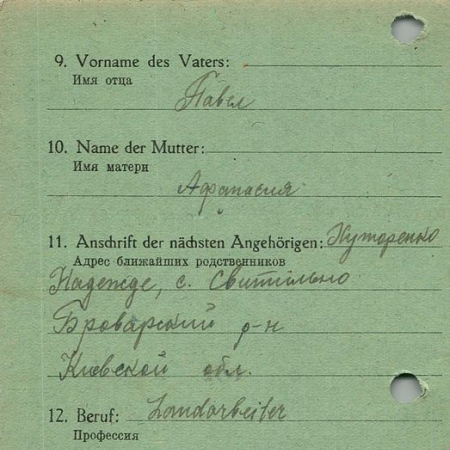 9. Vorname des Vaters:
Имя отца
Павел
10. Name der Mutter:
Имя матери
Афанасия
11. Anschrift der nächsten Angehörigen: Куторенко
Адрес ближайших родственников
Надежде, с. Свитильно
Броварский р-н
Киевской обл.
12. Beruf: Landarbeiter
Профессия